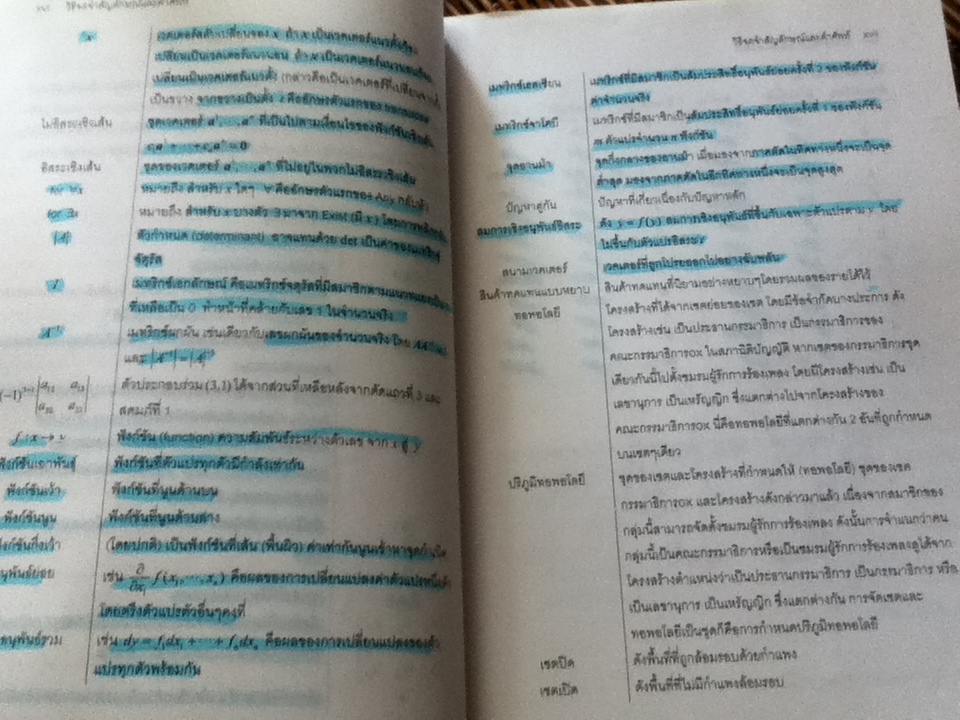 xvi วิธีจดจำสัญลักษณ์และคำศัพท์
x'
เวกเตอร์สลับเปลี่ยนของ x ถ้า x เป็นเวคเตอร์แนวตั้งก็จะ
เปลี่ยนเป็นเวคเตอร์แนวนอน ถ้า x เป็นเวคเตอร์แนวนอนก็จะ
เปลี่ยนเป็นเวคเตอร์แนวตั้ง (กล่าวคือเป็นเวคเตอร์ที่เปลี่ยนจากตั้ง
เป็นขวาง จากขวางเป็นตั้ง คืออักษรตัวแรกของ transpose
ไม่อิสระเชิงเส้น
ชุดเวคเตอร์ ที่เป็นไปตามเงื่อนไขของฟังก์ชันเชิงเส้น
อิสระเชิงเส้น
ชุดของเวคเตอร์ ที่ไม่อยู่ในพวกไม่อิสระเชิงเส้น
for ∀x
หมายถึง สำหรับ x ใดๆ ∀ คืออักษรตัวแรกของ Any กลับหัว
for ∃x
หมายถึง สำหรับ x บางตัว ∃ มาจาก Exist (มี x) โดยการพลิกกลับ
|A|
ตัวกำหนด (determinant) อาจแทนด้วย det เป็นค่าของเมทริกซ์
จัตุรัส
I
เมทริกซ์เอกลักษณ์ คือเมทริกซ์จัตุรัสที่มีสมาชิกตามแนวทแยงเป็น
ที่เหลือเป็น 0 ทำหน้าที่คล้ายกับเลข 1 ในจำนวนจริง
A⁻¹
เมทริกซ์ผกผัน เช่นเดียวกับเลขผกผันของจำนวนจริง โดย
และ
(-1)³⁺¹ |a₁₂ a₁₃|
|a₂₂ a₂₃|
ตัวประกอบร่วม (3,1) ได้จากส่วนที่เหลือหลังจากตัดแถวที่ 3 และ
สดมภ์ที่ 1
f : x → y
ฟังก์ชัน (function) ความสัมพันธ์ระหว่างตัวเลข จาก x สู่ y
ฟังก์ชันเอกพันธุ์
ฟังก์ชันที่ตัวแปรทุกตัวมีกำลังเท่ากัน
ฟังก์ชันเว้า
ฟังก์ชันที่นูนด้านบน
ฟังก์ชันนูน
ฟังก์ชันที่นูนด้านล่าง
ฟังก์ชันกึ่งเว้า
(โดยปกติ) เป็นฟังก์ชันที่เส้น (พื้นผิว) ค่าเท่ากันนูนเข้าหาจุดกำเนิด
อนุพันธ์ย่อย
เช่น ∂/∂x₁ f(x₁,⋯,xₙ) คือผลของการเปลี่ยนแปลงค่าตัวแปรหนึ่งตัว
โดยตรึงตัวแปรตัวอื่นๆคงที่
อนุพันธ์รวม
เช่น dy = f₁dx₁ + ⋯ + fₙdxₙ คือผลของการเปลี่ยนแปลงของตัว
แปรทุกตัวพร้อมกัน
วิธีจดจำสัญลักษณ์และคำศัพท์ xvii
เมทริกซ์เฮสเซียน
เมทริกซ์ที่มีสมาชิกเป็นสัมประสิทธิ์อนุพันธ์ย่อยครั้งที่ 2 ของฟังก์ชัน
ค่าจำนวนจริง
เมทริกซ์จาโคบี
เมทริกซ์ที่มีสมาชิกเป็นสัมประสิทธิ์อนุพันธ์ย่อยครั้งที่ 1 ของฟังก์ชัน
m ตัวแปรจำนวน n ฟังก์ชัน
จุดอานม้า
จุดกึ่งกลางของอานม้า เมื่อมองจากภาคตัดในทิศทางหนึ่งจะเป็นจุด
ต่ำสุด มองจากภาคตัดในอีกทิศทางหนึ่งจะเป็นจุดสูงสุด
ปัญหาคู่กัน
ปัญหาที่เกี่ยวเนื่องกับปัญหาหลัก
สมการเชิงอนุพันธ์อิสระ
ดัง ẏ = f(y) สมการเชิงอนุพันธ์ที่ขึ้นกับเฉพาะตัวแปรตาม y โดย
ไม่ขึ้นกับตัวแปรอิสระ
สนามเวคเตอร์
เวคเตอร์ที่ถูกโปรยออกไปอย่างฉับพลัน
สินค้าทดแทนแบบหยาบ
สินค้าทดแทนที่นิยามอย่างหยาบๆโดยรวมผลของรายได้ไว้
ทอพอโลยี
โครงสร้างที่ได้จากเซตย่อยของเซต โดยมีข้อจำกัดบางประการ ดัง
โครงสร้างเช่น เป็นประธานกรรมาธิการ เป็นกรรมาธิการของ
คณะกรรมาธิการox ในสภานิติบัญญัติ หากเซตของกรรมาธิการชุด
เดียวกันนี้ไปตั้งชมรมผู้รักการร้องเพลง โดยมีโครงสร้างเช่น เป็น
เลขานุการ เป็นเหรัญญิก ซึ่งแตกต่างไปจากโครงสร้างของ
คณะกรรมาธิการox นี่คือทอพอโลยีที่แตกต่างกัน 2 อันที่ถูกกำหนด
บนเซตๆเดียว
ปริภูมิทอพอโลยี
ชุดของเซตและโครงสร้างที่กำหนดให้ (ทอพอโลยี) ชุดของเซต
กรรมาธิการox และโครงสร้างดังกล่าวมาแล้ว เนื่องจากสมาชิกของ
กลุ่มนี้สามารถจัดตั้งชมรมผู้รักการร้องเพลง ดังนั้นการจำแนกว่าคน
กลุ่มนี้เป็นคณะกรรมาธิการหรือเป็นชมรมผู้รักการร้องเพลงดูได้จาก
โครงสร้างตำแหน่งว่าเป็นประธานกรรมาธิการ เป็นกรรมาธิการ หรือ
เป็นเลขานุการ เป็นเหรัญญิก ซึ่งแตกต่างกัน การจัดเซตและ
ทอพอโลยีเป็นชุดก็คือการกำหนดปริภูมิทอพอโลยี
เซตปิด
ดังพื้นที่ที่ถูกล้อมรอบด้วยกำแพง
เซตเปิด
ดังพื้นที่ที่ไม่มีกำแพงล้อมรอบ